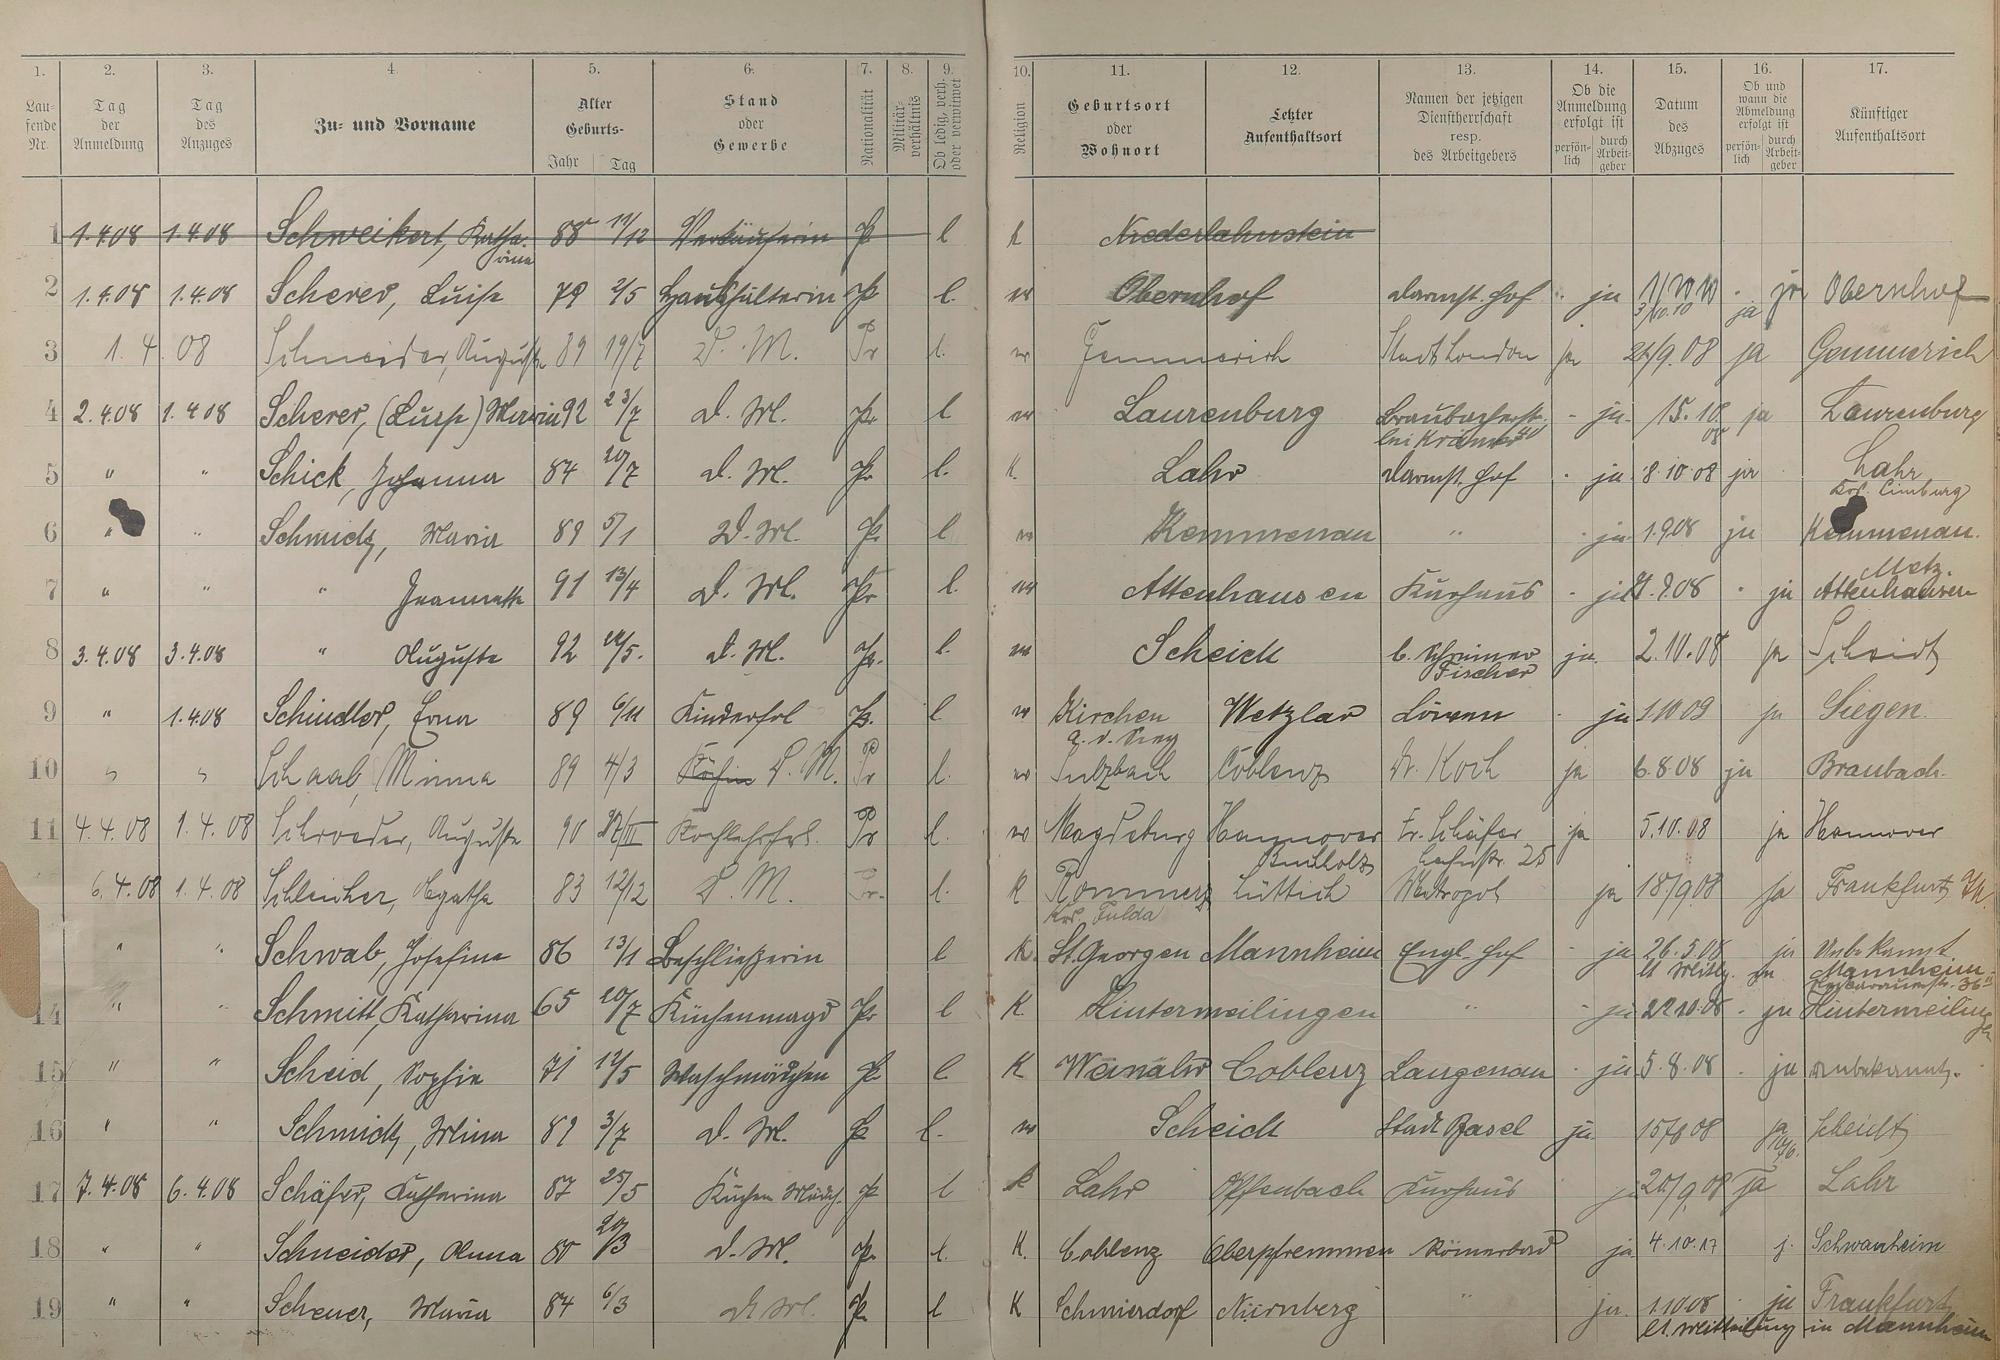 1. 2. 3. 4. 5. 6. 7. 8. 9. 10. 11. 12. 13. 14. 15. 16. 17.
Lau- fende Nr. | Tag der Anmeldung | Tag des Anzuges | Zu- und Vorname | Alter Geburts- Jahr Tag | Stand oder Gewerbe | Nationalität | Militär- verhältnis | Ob ledig, verh. oder verwitwet | Religion | Geburtsort oder Wohnort | Letzter Aufenthaltsort | Namen der jetzigen Dienstherrschaft resp. des Arbeitgebers | Ob die Anmeldung erfolgt ist persön- lich durch Arbeit- geber | Datum des Abzuges | Ob und wann die Abmeldung erfolgt ist persön- lich durch Arbeit- geber | Künftiger Aufenthaltsort
1 1.4.08 1.4.08 Schweikert, Katha- rina 88 Verkäuferin Pr. l K Niederlahnstein
2 1.4.08 1.4.08 Scherer, Luise 79 2/5 Haushälterin Pr l. Obernhof Darmst. Hof ja 3/10.10 ja Obernhof
3 1. 4. 08 Schneider, Auguste 89 19/7 D. M. Pr l. Gemmerich Stadt London ja /9.08 ja Gemmerich
4 2.4.08 1.4.08 Scherer, (Luise) Maria 92 23/7 D. M. Pr. l Laurenburg Braubacherstr. bei Krämer ja 15.10.08 ja Laurenburg
5 " " Schick, Johanna 84 20/7 D. M. Pr l. K. Lahr Darmst. Hof ja 8.10.08 ja Lahr Krs. Limburg
6 " " Schmidt, Maria 89 5/1 D. M. Pr l Kemmenau " ja 1.9.08 ja Kemmenau.
7 " " " Jeannette 91 13/4 D. M. Pr l. Attenhausen Kurhaus ja .9.08 ja Metz. Attenhausen
8 3.4.08 3.4.08 " Auguste 92 /5. D. M. Pr. l. Scheidt b. Schreiner Fischer ja 2.10.08 ja Scheidt
9 " 1.4.08 Schindler, Erna 89 6/11 Kinderfrl Pr. l Kirchen a. d. Sieg Wetzlar Löwen ja 1.10.09 ja Siegen
10 " " Schaab, Minna 89 4/3 Köchin D. M. Pr l. Sulzbach Coblenz Dr. Koch ja 6.8.08 ja Braubach.
11 4.4.08 1.4.08 Schroeder, Auguste 90 /III Kochlehrfrl. Pr l. Magdeburg Hannover Buchholz Fr. Schäfer 25 ja 5.10.08 ja Hannover
6.4.08 1.4.08 Schleicher, Agatha 83 12/12 D. M. Pr. l. K Rommerz Krs. Fulda Lüttich Metropol ja 18/9 08 ja Frankfurt a/M.
" " Schwab, Josefine 86 13/11 Beschließerin l K. St. Georgen Mannheim Engl. Hof ja 26.5.08 ja Unbekannt lt. Mitteilg. Mannheim 36
14 " " Schmitt, Katharina 65 20/7 Küchenmagd Pr l K. Hintermeilingen " ja 22.10.08 ja Hintermeilingen
15 " " Scheid, Sophie 71 12/5 Waschmädchen Pr l K Weinähr Coblenz Langenau ja 5.8.08 ja unbekannt.
16 " " Schmidt, Mina 89 3/7 D. M. Pr l. Scheidt Stadt Basel ja 15/ 08 ja Scheidt
17 7.4.08 6.4.08 Schäfer, Katharina 87 25/5 Küchen Mädch. Pr l K Lahr Offenbach Kurhaus ja /9 08 ja Lahr
18 " " Schneider, Anna 80 20/3 D. M. Pr. l. K. Coblenz Oberpfremmen Römerbad ja 4.10.17 j. Schwanheim
19 " " Scheuer, Maria 84 6/3 D. M. Pr. l K Schmierdorf Nürnberg " ja. 1.10.08 ja Frankfurt
lt. Mitteilung in Mannheim